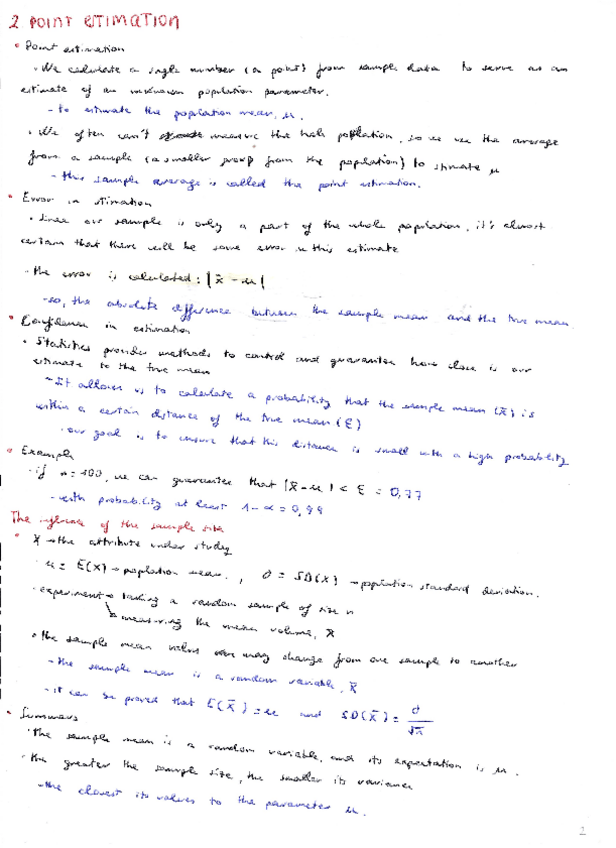 2 POINT ESTIMATION
• Point estimation
• We calculate a single number (a point) from sample data to serve as an
estimate of an unknown population parameter.
- to estimate the population mean, μ.
• We often can't measure the hole population, so we use the average
from a sample (a smaller group from the population) to stimate μ
- this sample average is called the point estimation.
• Error in stimation
• Since our sample is only a part of the whole population, it's almost
certain that there will be some error in this estimate
- the error is calculated: |x̄ - μ|
- so, the absolute difference between the sample mean and the true mean
• Confidence in estimation
• Statistics provides methods to control and guarantee how close is our
estimate to the true mean
- It allows us to calculate a probability that the sample mean (x̄) is
within a certain distance of the true mean (ε)
• our goal is to ensure that this distance is small with a high probability
• Example
• if n = 100, we can guarantee that |x̄ - μ| < ε = 0,77
- with probability at least 1 - α = 0,99
The influence of the sample size
• X → the attribute under study
• μ = E(X) → population mean. , σ = SD(X) → population standard deviation.
• experiment → taking a random sample of size n
measuring the mean volume, x̄
• the sample mean values may change from one sample to another
- the sample mean is a random variable, x̄
- it can be proved that E(x̄) = μ and SD(x̄) = σ/√n
• Summary
• the sample mean is a random variable, and its expectation is μ.
• the greater the sample size, the smaller its variance
- the closest its values to the parameter μ.
2